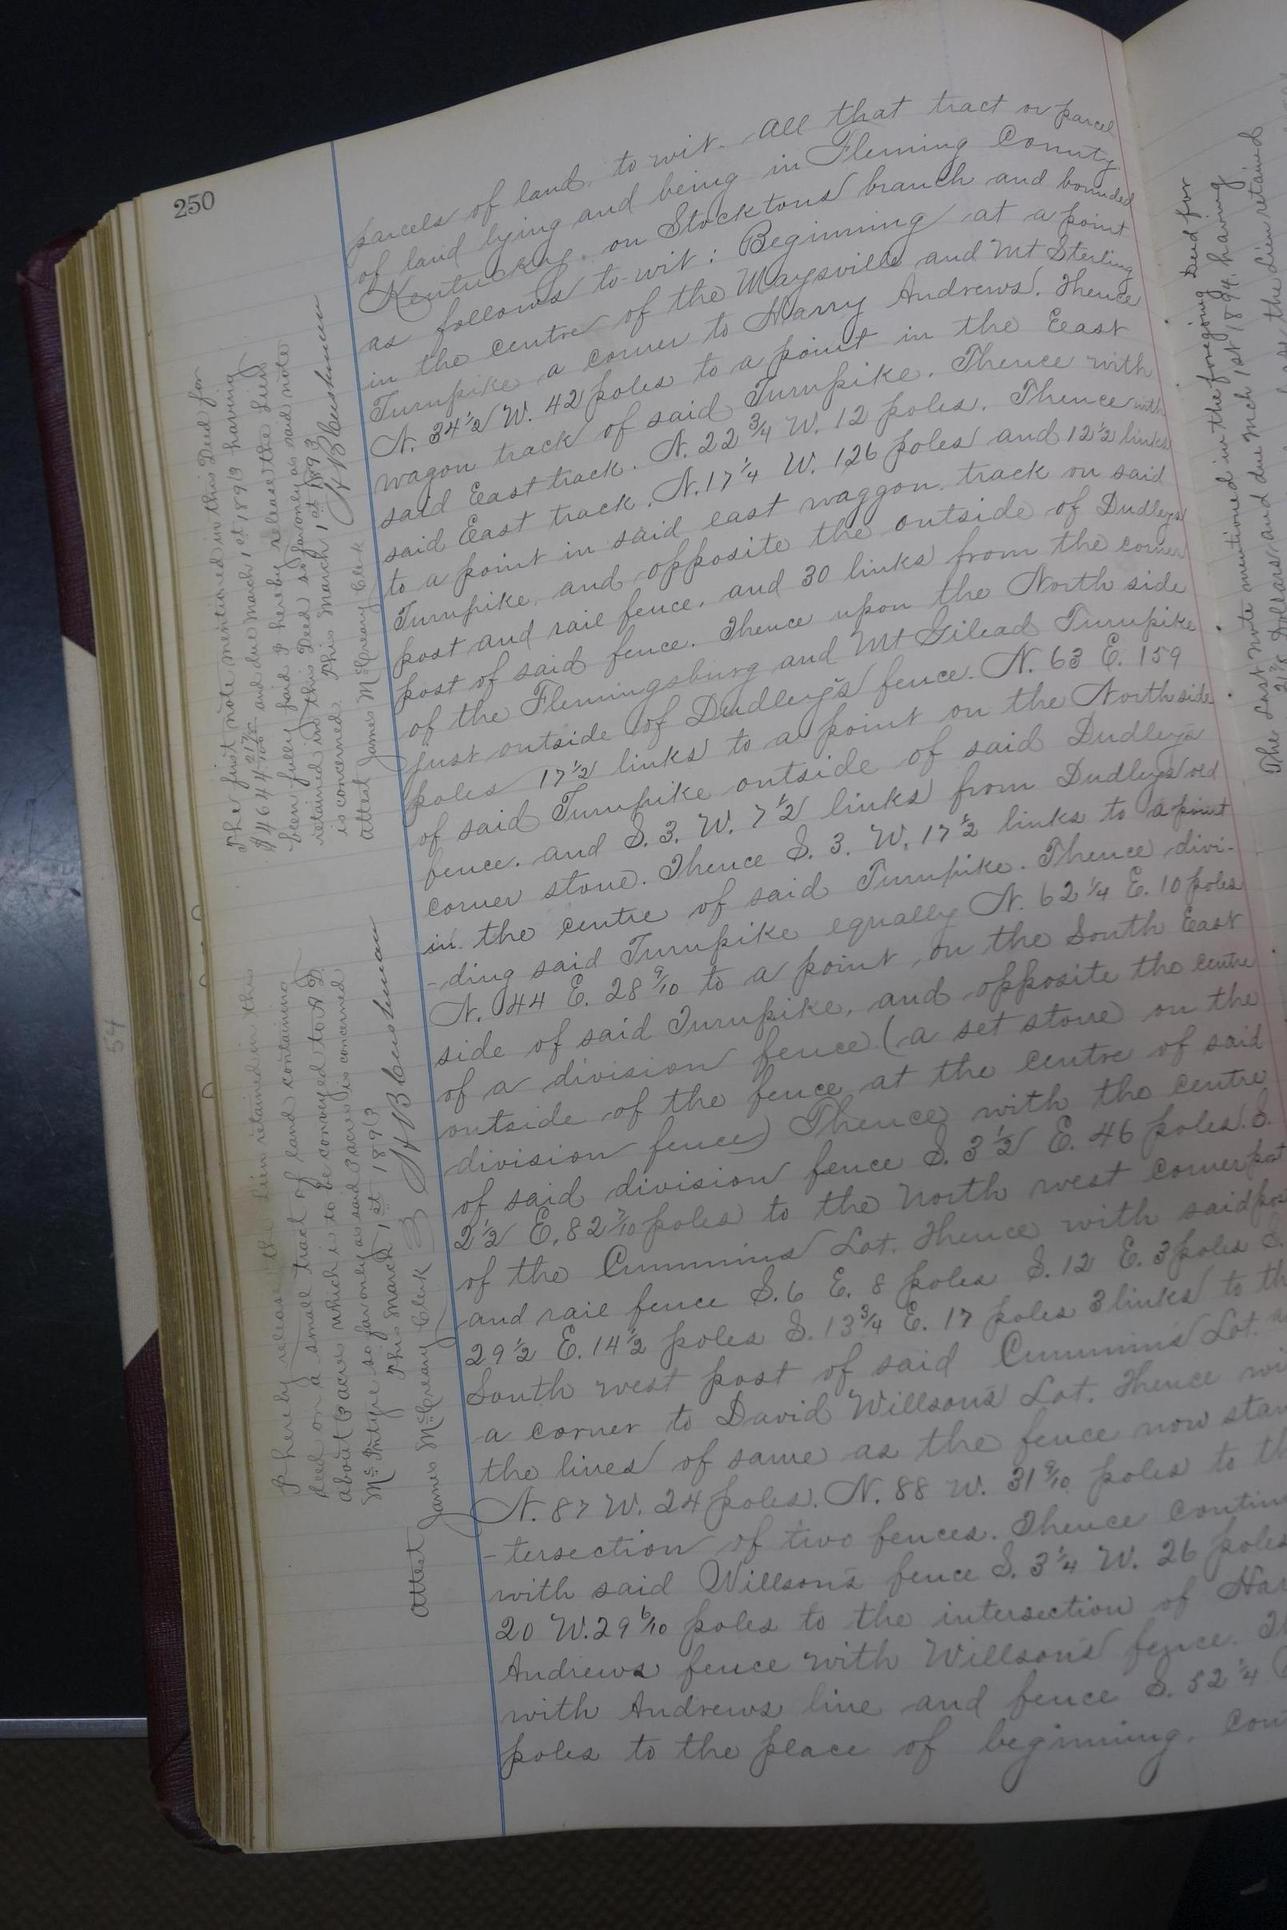 250
parcels of land, to wit. All that tract or parcel
of land lying and being in Fleming County
Kentucky, on Stocktons branch and bounded
as follows to-wit: Beginning at a point
in the centre of the Maysville and Mt Sterling
Turnpike a corner to Harry Andrews. Thence
N. 34 1/2 W. 42 poles to a point in the East
wagon track of said Turnpike. Thence with
said East track. N. 22 3/4 W. 12 poles. Thence with
said East track. N. 17 1/4 W. 126 poles and 12 1/2 links
to a point in said east waggon track on said
Turnpike, and opposite the outside of Dudleys
post and rail fence, and 30 links from the corner
post of said fence. Thence upon the North side
of the Flemingsburg and Mt Gilead Turnpike
just outside of Dudley's fence. N. 63 E. 159
poles 17 1/2 links to a point on the North side
of said Turnpike outside of said Dudleys
fence. and S. 3. W. 7 1/2 links from Dudleys old
corner stone. Thence S. 3. W. 17 1/2 links to a point
in the centre of said Turnpike. Thence divi-
-ding said Turnpike equally N. 62 1/4 E. 10 poles
N. 44 E. 28 9/10 to a point on the South East
side of said Turnpike, and opposite the centre
of a division fence (a set stone on the
outside of the fence at the centre of said
division fence) Thence with the centre
of said division fence S. 3 1/2 E. 46 poles. S.
2 1/2 E. 82 7/10 poles to the North west corner post
of the Cummins Lot. Thence with said post
and rail fence S. 6 E. 8 poles S. 12 E. 3 poles S.
29 1/2 E. 14 1/2 poles S. 13 3/4 E. 17 poles 3 links to th
South west post of said Cummins Lot.
a corner to David Willson's Lot. Thence wi
the lines of same as the fence now stan
N. 87 W. 24 poles. N. 88 W. 31 9/10 poles to th
-tersection of two fences. Thence contin
with said Willson's fence S. 3 1/4 W. 26 poles
20 W. 29 6/10 poles to the intersection of Har
Andrews fence with Willsons fence. T
with Andrews line and fence S. 52 1/4
poles to the place of beginning. Con
The first note mentioned in this Deed for
$4644 21/100 and due March 1st 1893 having
been fully paid I hereby release the Lien
retained in this Deed so far only as said note
is concerned. This March 1st 1893
H B Cushman
Attest James McCreary Clerk
I hereby release the Lien retained in this
Deed on a small tract of land containing
about 3 acres which is to be conveyed to A D
McIntyre so far only as said 3 acres is concerned
This March 1st 1893
H B Cushman
Attest James McCreary Clerk
The Last note mentioned in the foregoing Deed for
Dollars and due Mch 1st 1894, having
the Lien retained
54